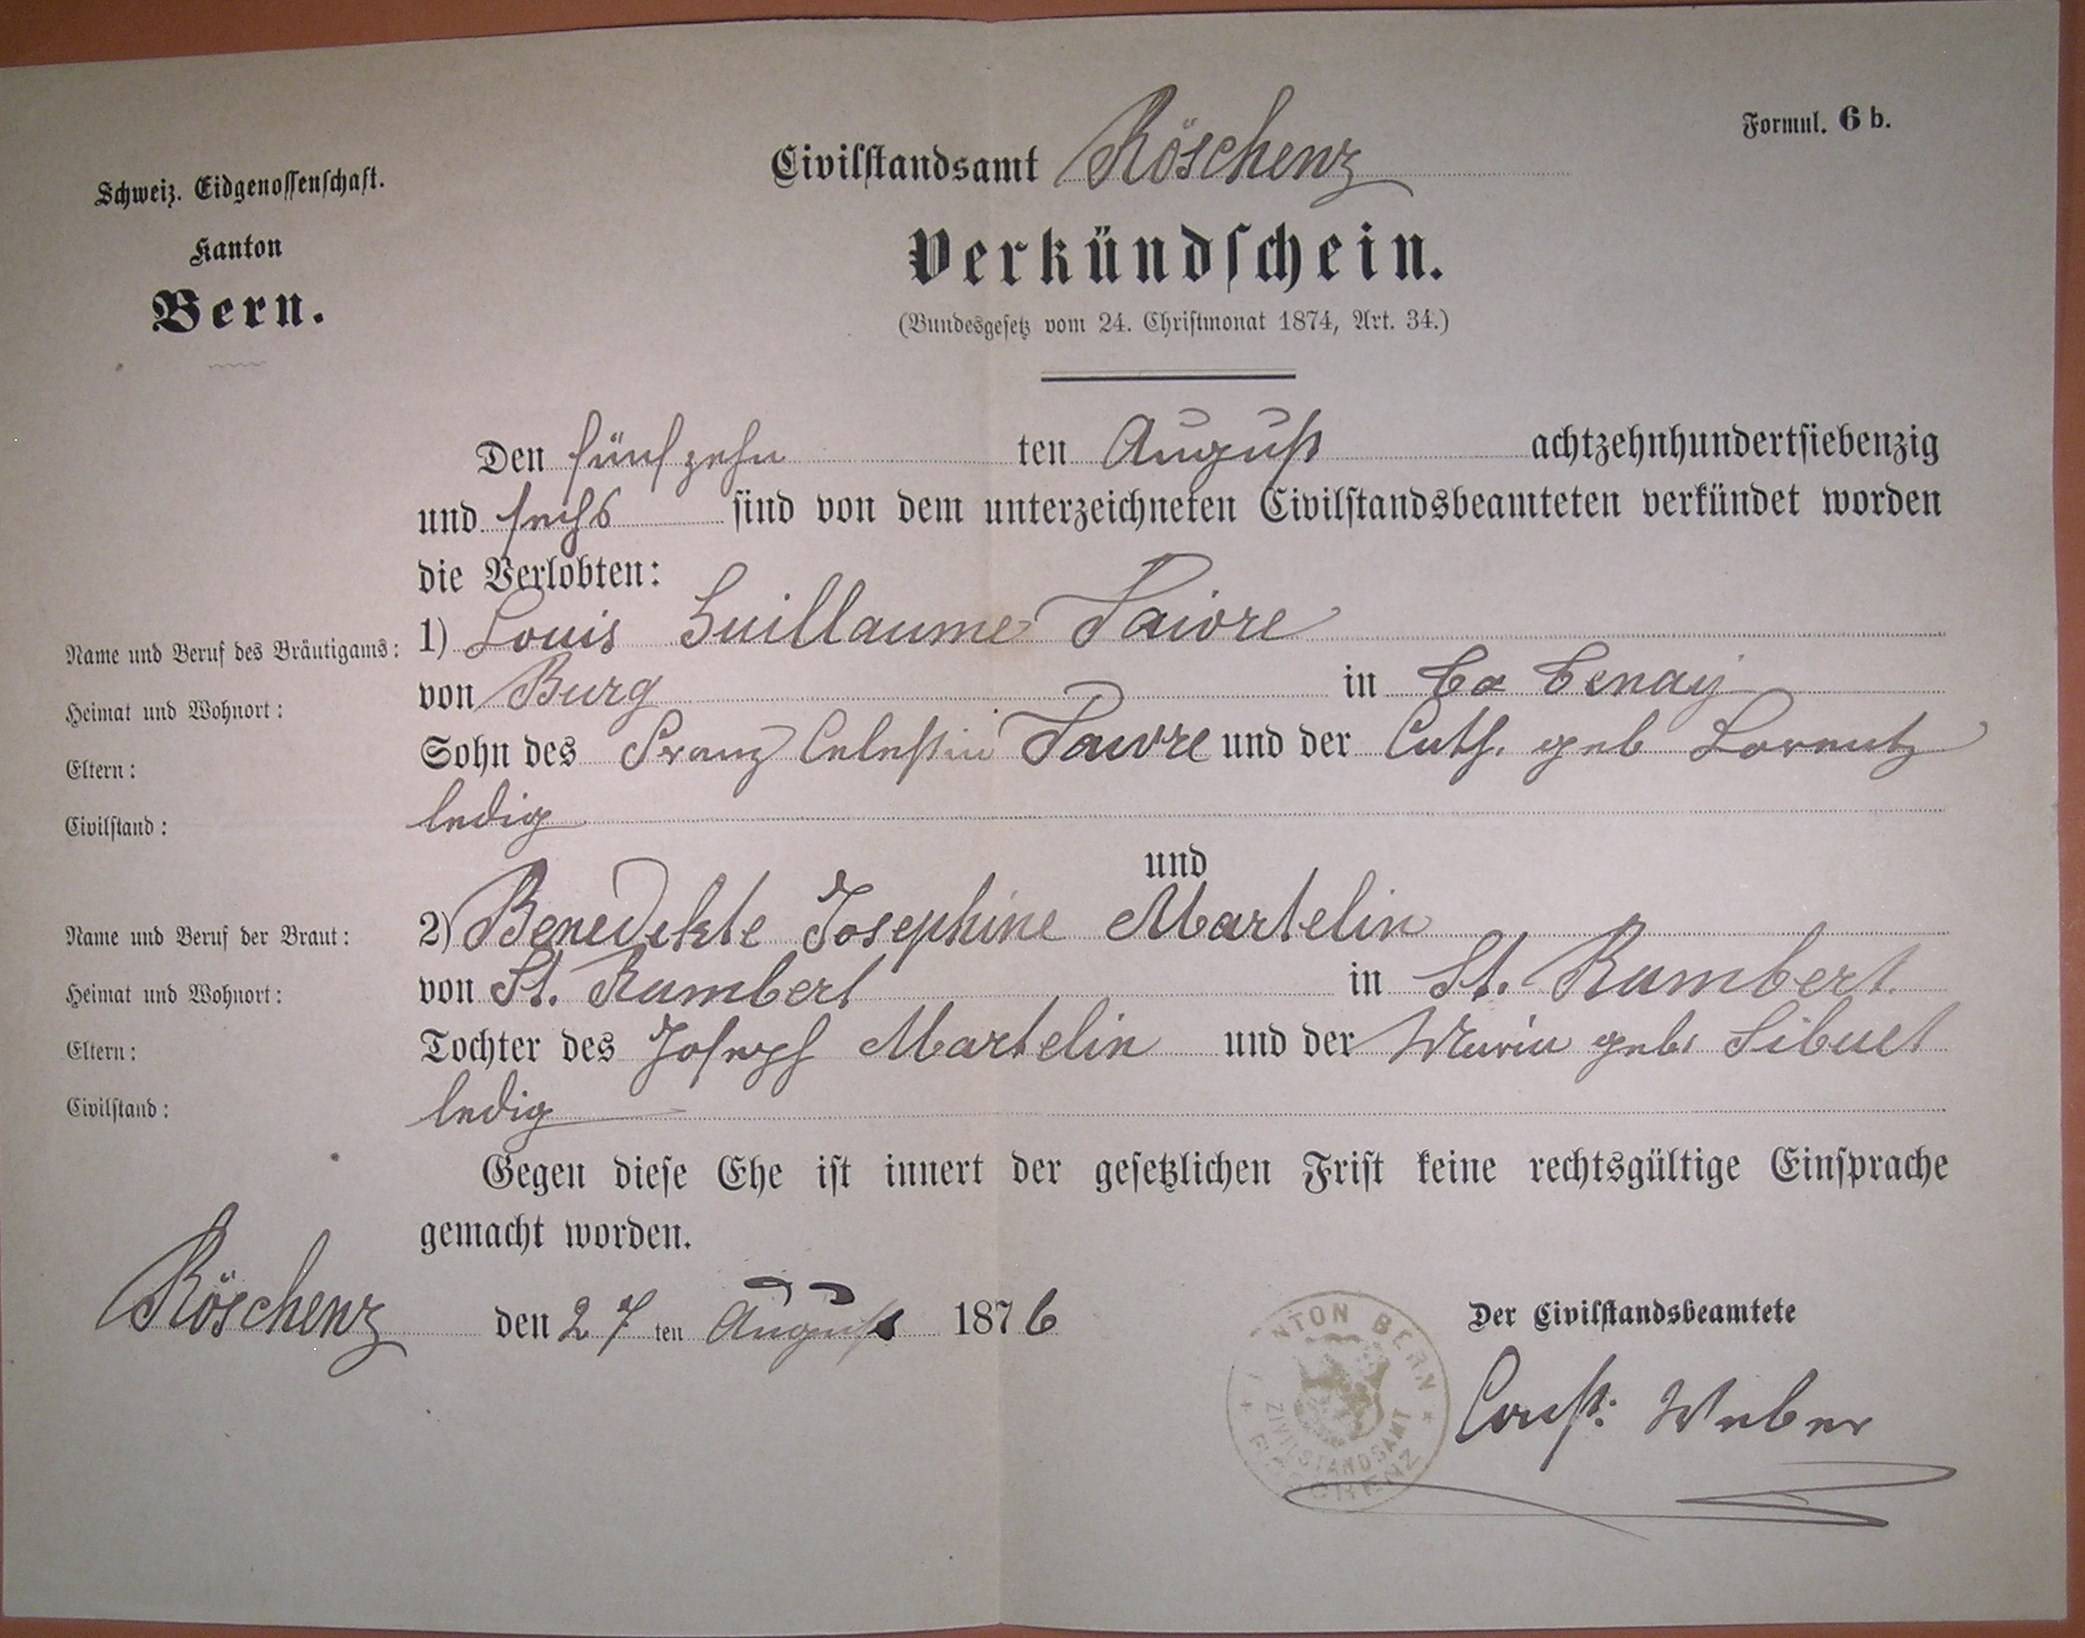 Formul. 6 b.
Schweiz. Eidgenossenschaft.
Kanton
Bern.
Civilstandsamt Röschenz
Verkündschein.
(Bundesgesetz vom 24. Christmonat 1874, Art. 34.)
Den fünfzehnten August achtzehnhundertsiebenzig
und sechs sind von dem unterzeichneten Civilstandsbeamteten verkündet worden
die Verlobten:
Name und Beruf des Bräutigams: 1) Louis Guillaume Faivre
Heimat und Wohnort: von Burg in Tenay
Eltern: Sohn des Franz Celestin Faivre und der Cath. geb Lorentz
Civilstand: ledig
und
Name und Beruf der Braut: 2) Benedikte Josephine Martelin
Heimat und Wohnort: von St. Rambert in St. Rambert.
Eltern: Tochter des Joseph Martelin und der Maria geb. Sibuet
Civilstand: ledig
Gegen diese Ehe ist innert der gesetzlichen Frist keine rechtsgültige Einsprache
gemacht worden.
Röschenz den 27ten August 1876
Der Civilstandsbeamtete
Const: Weber
KANTON BERN
ZIVILSTANDSAMT
ROESCHENZ